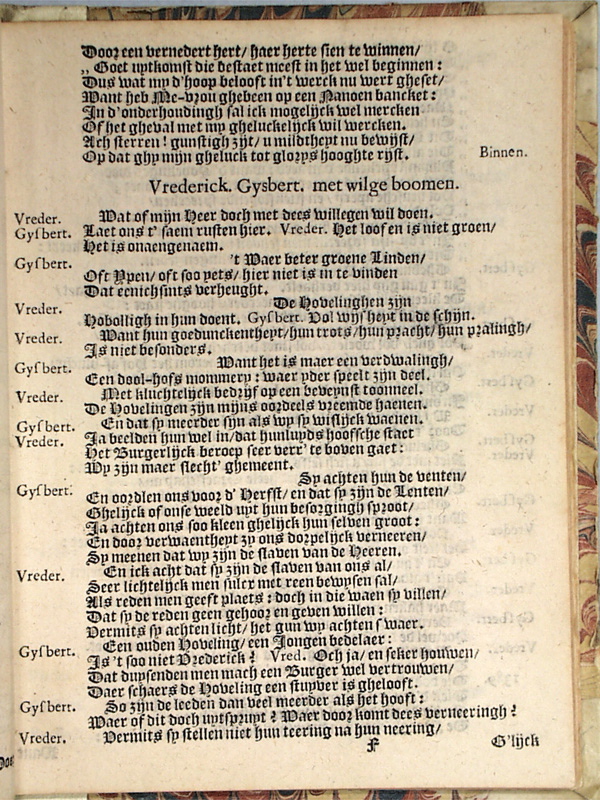 Door een vernedert hert/ haer herte sien te winnen/
„ Goet uytkomst die bestaet meest in het wel beginnen:
Dus wat my d'hoop belooft in't werck nu wert gheset/
Want heb Me-vrou ghebeen op een Nanoen bancket:
In d'onderhoudingh sal ick mogelijck wel mercken
Of het gheval met my gheluckelijck wil wercken.
Ach sterren! gunstigh zijt/ u mildtheyt nu bewijst/
Op dat ghy mijn gheluck tot glorys hooghte rijst. Binnen.
Vrederick. Gysbert. met wilge boomen.
Vreder. Wat of mijn Heer doch met dees willegen wil doen.
Gysbert. Laet ons t' saem rusten hier. Vreder. Het loof en is niet groen/
Het is onaengenaem.
Gysbert. 't Waer beter groene Linden/
Oft Ypen/ oft soo yets/ hier niet is in te vinden
Dat eenichsints verheught.
Vreder. De Hovelinghen zijn
Hobolligh in hun doent. Gysbert. Vol wijsheyt in de schijn.
Vreder. Want hun goedunckentheyt/hun trots/hun pracht/ hun pralingh/
Is niet besonders.
Gysbert. Want het is maer een verdwalingh/
Een dool-hofs mommery: waer yder speelt zijn deel.
Vreder. Met kluchtelijck bedrijf op een beveynst tooneel.
De Hovelingen zijn mijns oordeels vreemde haenen.
Gysbert. En dat sy meerder sijn als wy sy wislijck waenen.
Vreder. Ja beelden hun wel in/dat hunluyds hooffsche staet
Het Burgerlijck beroep seer verr' te boven gaet:
Wy zijn maer slecht' ghemeent.
Gysbert. Sy achten hun de venten/
En oordlen ons voor d' Herfst/ en dat sy zijn de Lenten/
Ghelijck of onse weeld uyt hun besorgingh sproot/
Ja achten ons soo kleen ghelijck hun selven groot:
En door verwaentheyt zy ons dorpelijck verneeren/
Sy meenen dat wy zijn de slaven van de Heeren.
Vreder. En ick acht dat sy zijn de slaven van ons al/
Seer lichtelijck men sulcx met reen bewysen sal/
Als reden men geeft plaets: doch in die waen sy villen/
Dat sy de reden geen gehoor en geven willen:
Vermits sy achten licht/ het gun wy achten s'waer.
Gysbert. Een ouden Hoveling/ een Jongen bedelaer:
Is 't soo niet Vrederick? Vred. Och ja/ en seker houwen/
Dat duysenden men mach een Burger wel vertrouwen/
Daer schaers de Hoveling een stuyver is ghelooft.
Gysbert. So zijn de leeden dan veel meerder als het hooft:
Waer of dit doch uytspruyt? Waer door komt dees verneeringh?
Vreder. Vermits sy stellen niet hun teering na hun neering/
F G'lijck